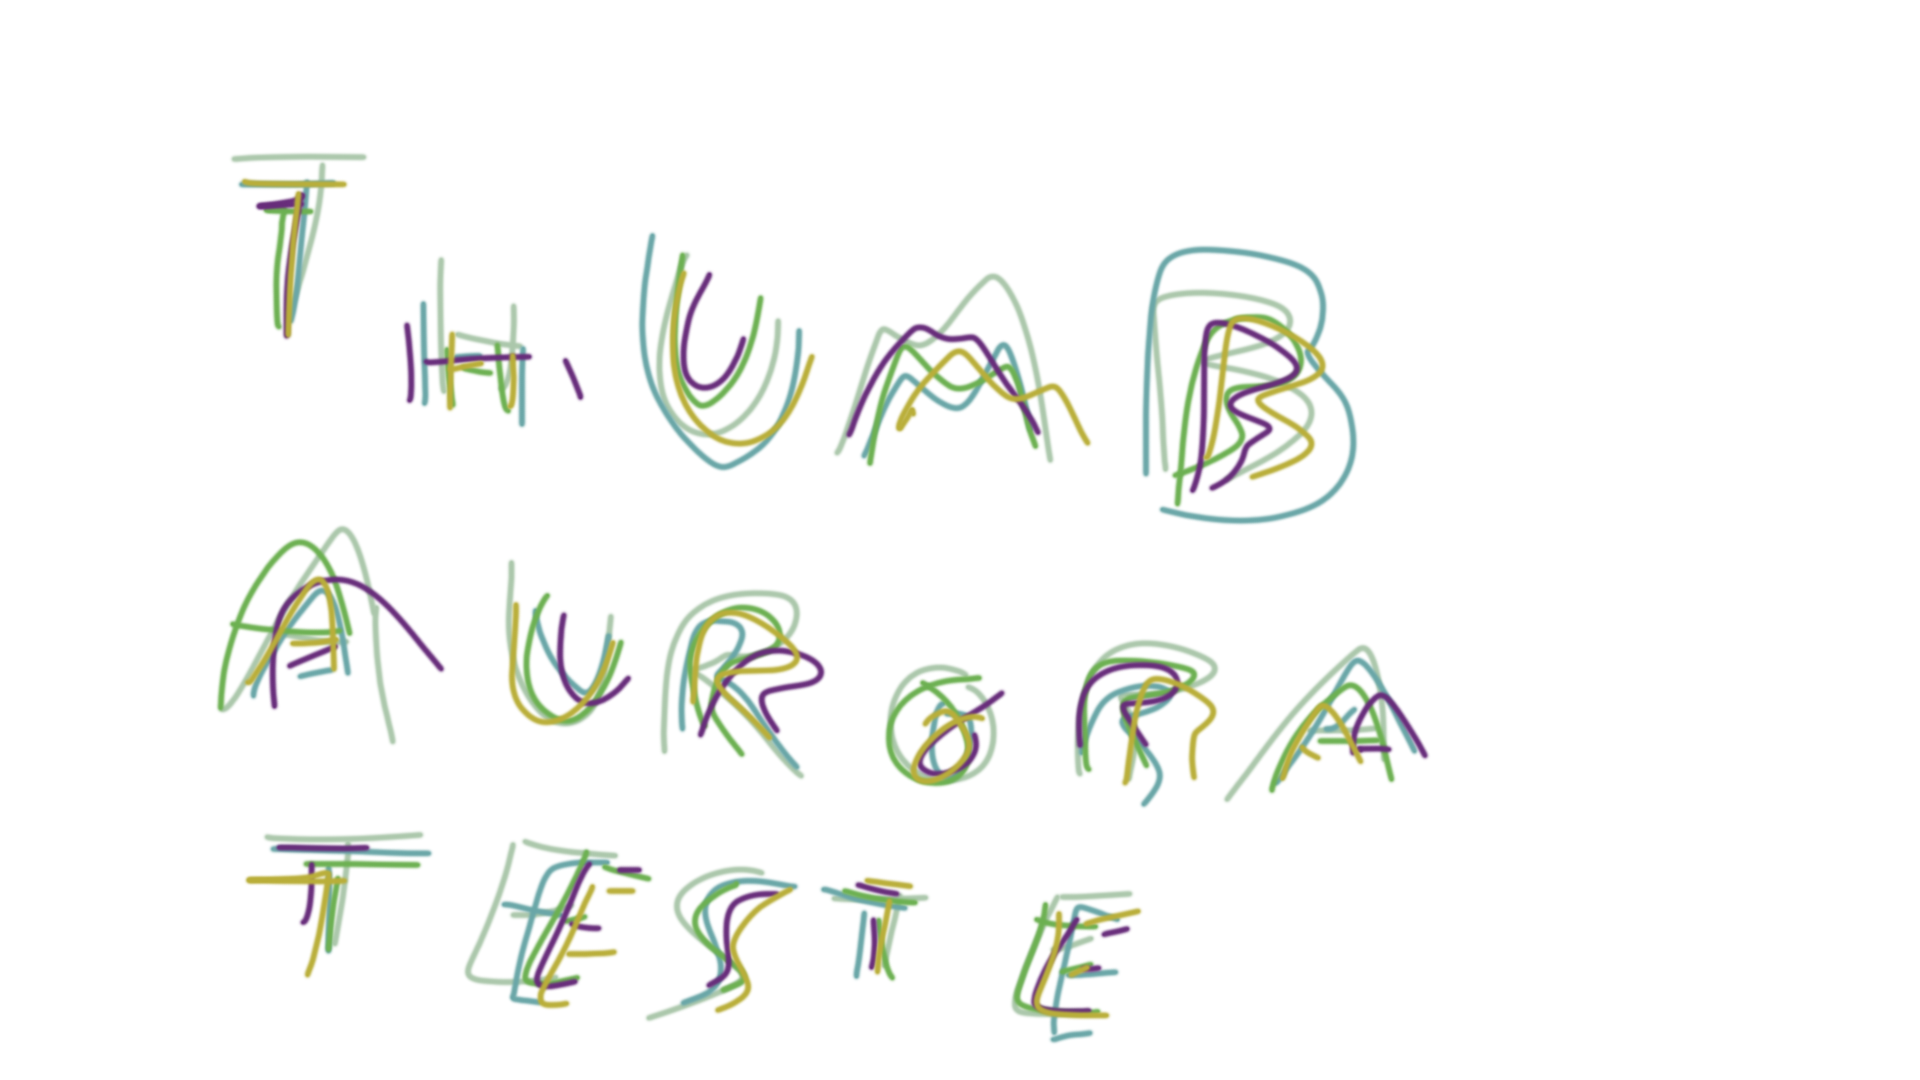 THUMB
AURORA
TESTE